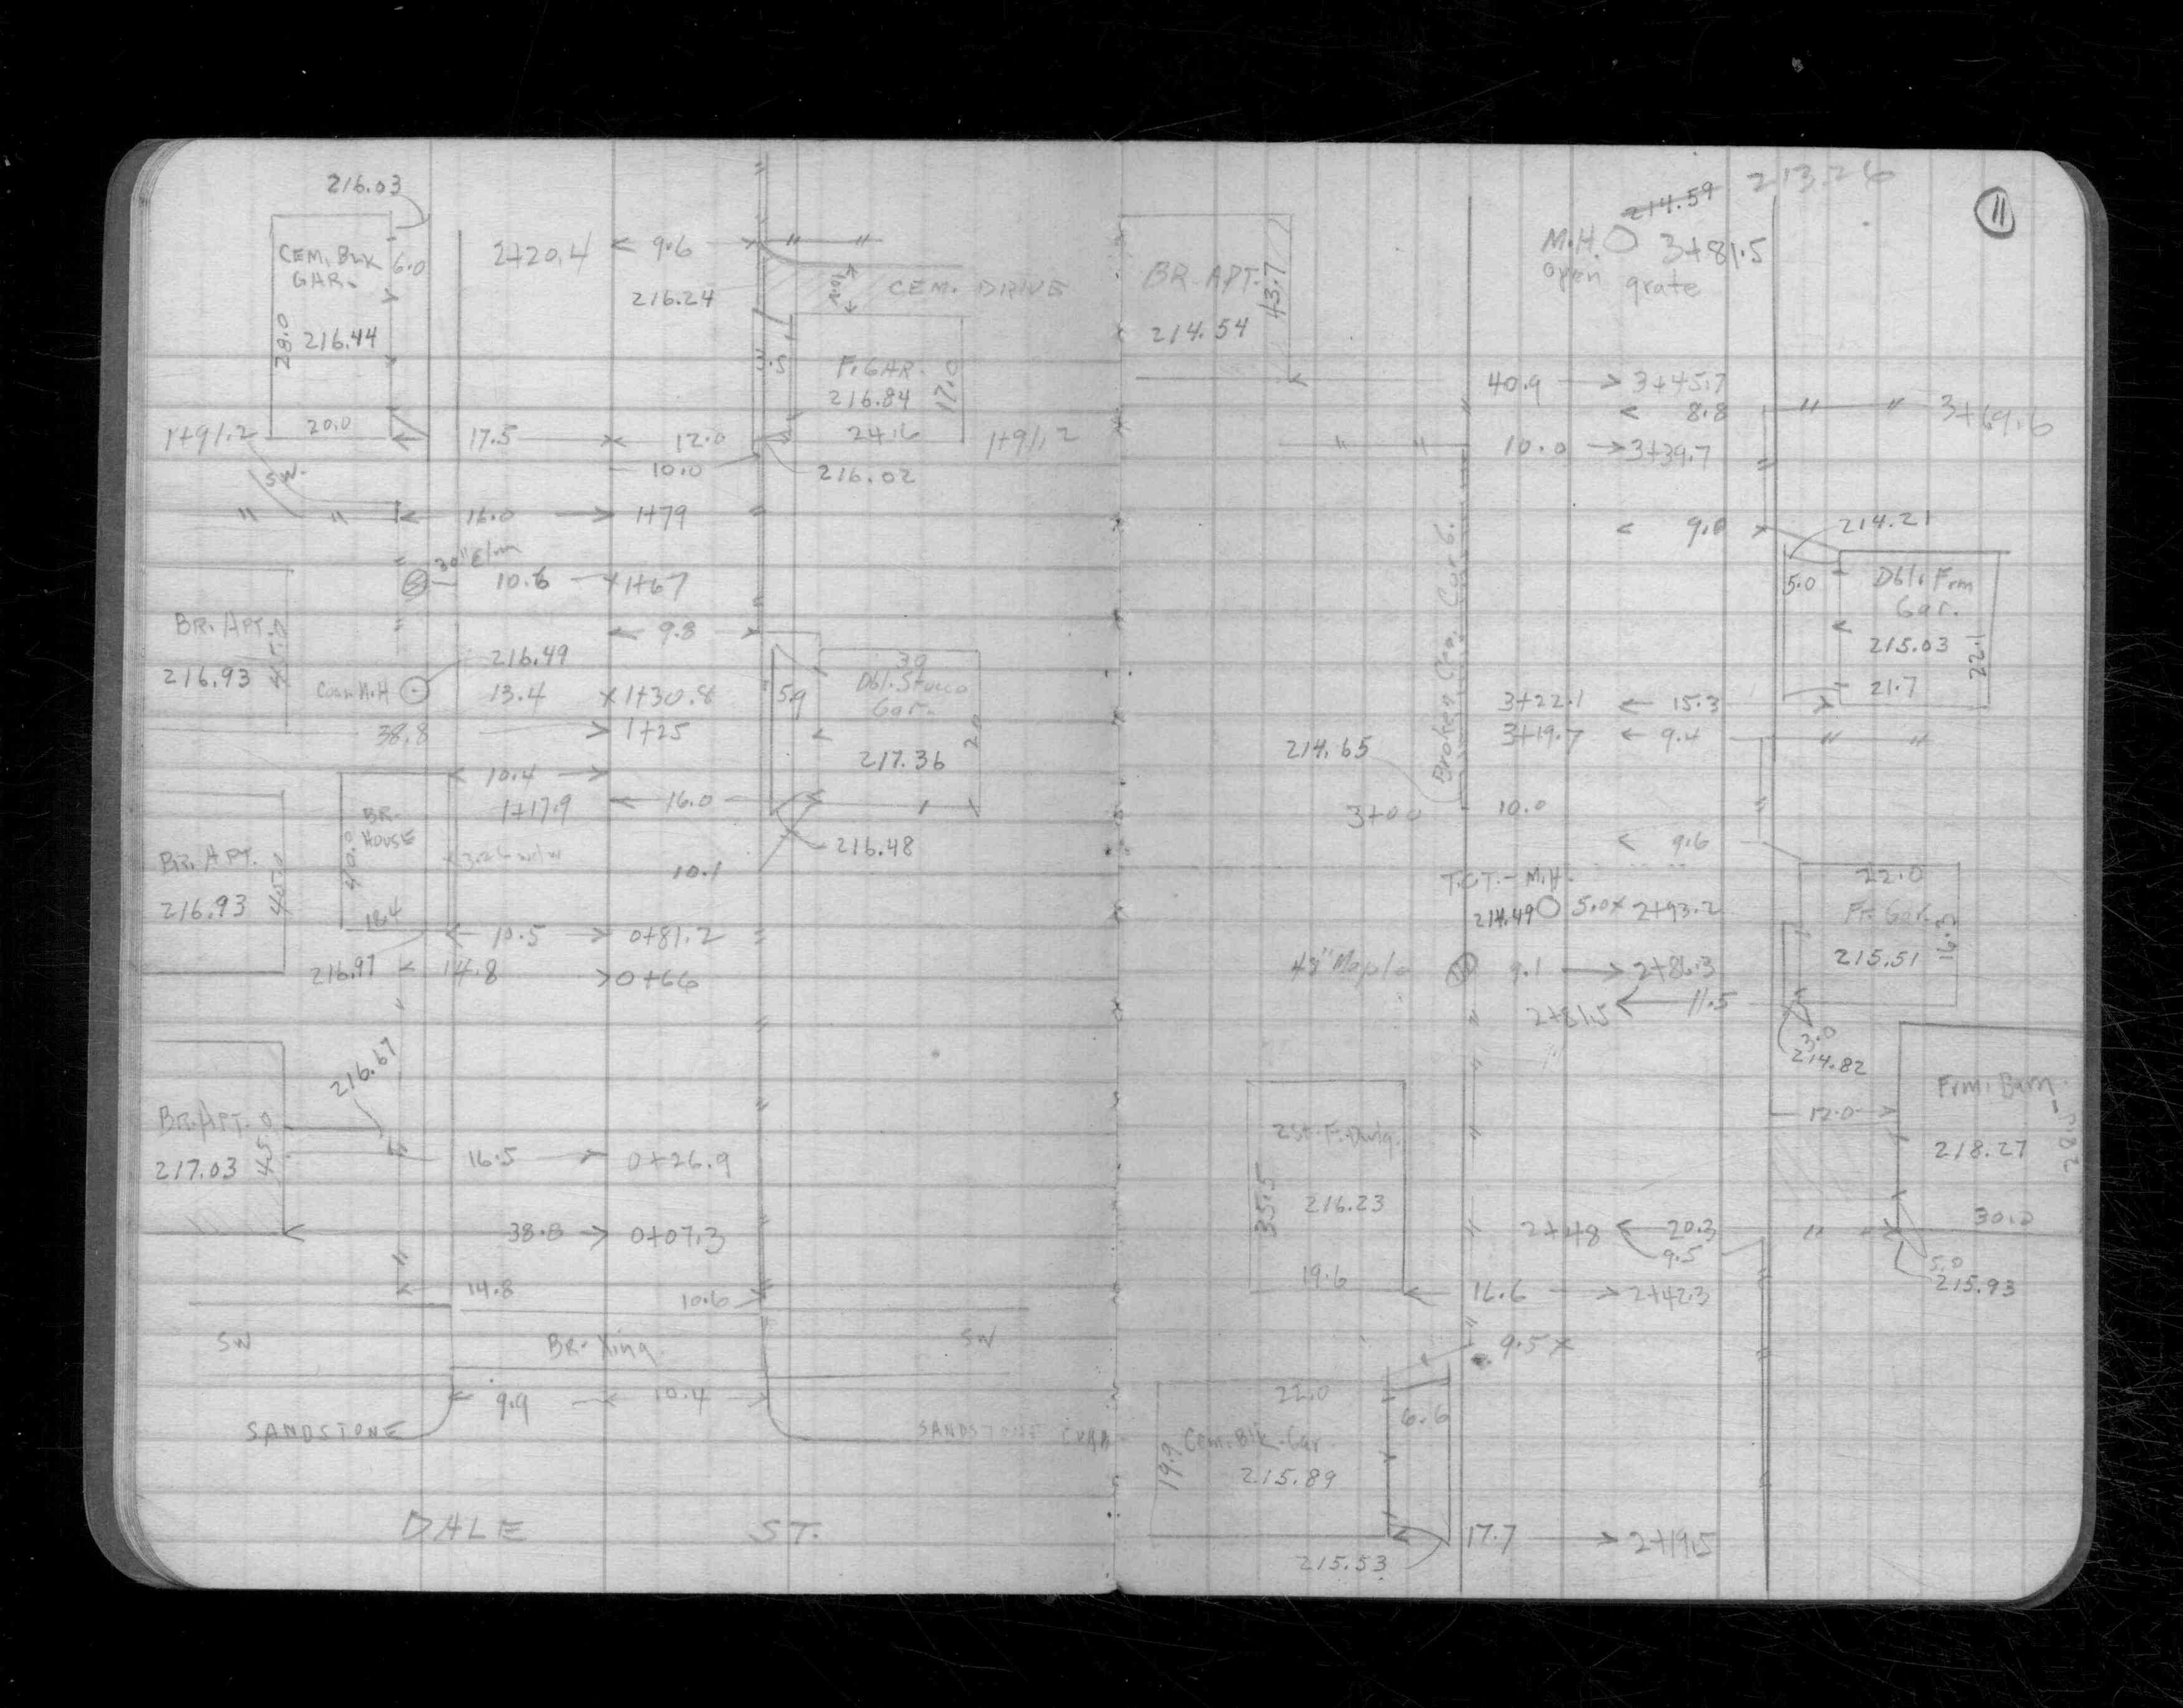 216.03
CEM. BLK
GAR.
6.0
28.0
216.44
20.0
1+91.2
SW.
2+20.4 9.6
216.24
10.0
CEM. DRIVE
F. GAR.
216.84
17.0
24.6
1+91.2
3.5
17.5 12.0
10.0
216.02
" "
16.0 1+79
30" Elm
10.6 1+67
9.8
BR. APT.
45.0
216.93
216.49
Com M.H
13.4 1+30.8
38.8 1+25
59
30
Dbl. Stucco
Gar.
20
217.36
10.4
1+17.9 16.0
216.48
BR.
HOUSE
40.0
18.4
10.1
BR. APT.
45.0
216.93
10.5 0+81.2
216.97 14.8 0+66
216.67
BR. APT.
45.0
217.03
16.5 0+26.9
38.8 0+07.3
14.8 10.6
SW BR. Xing SW
9.9 10.4
SANDSTONE SANDSTONE CURB
DALE ST.
11
214.59 213.26
M.H. 3+81.5
open grate
BR. APT.
43.7
214.54
40.9 3+45.7
8.8 " " 3+69.6
10.0 3+39.7
9.0 214.21
5.0
Dbl. Frm
Gar.
215.03
22.1
21.7
3+22.1 15.3
3+19.7 9.4
Broken
214.65
3+00 10.0
9.6
T.C.T. - M.H.
214.49 5.0 2+93.2
22.0
Fr. Gar.
16.3
215.51
48" Maple 9.1 2+86.3
2+81.5 11.5
3.0
214.82
Frm. Barn
12.0
218.27
30.0
2 St. F. Dwlg.
35.5
216.23
19.6
2+48 20.3
9.5
5.0
215.93
16.6 2+42.3
9.5
22.0
6.6
Cem. Blk. Gar.
19.9
215.89
17.7 2+19.5
215.53